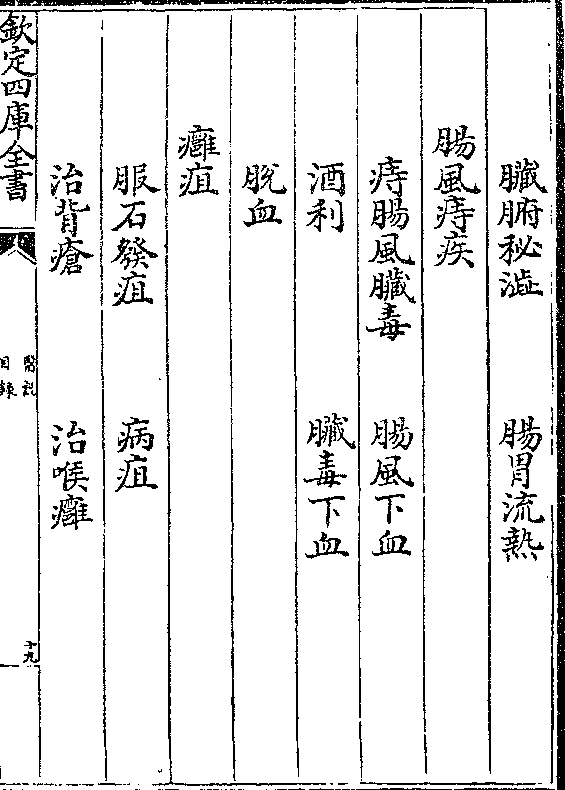 臟腑秘澁 腸胃流熱
腸風痔疾
痔腸風臟毒 腸風下血
酒利 臟毒下血
脫血
癰疽
服石發疽 病疽
治背瘡 治喉癰
欽定四庫全書
醫説
目録
十九